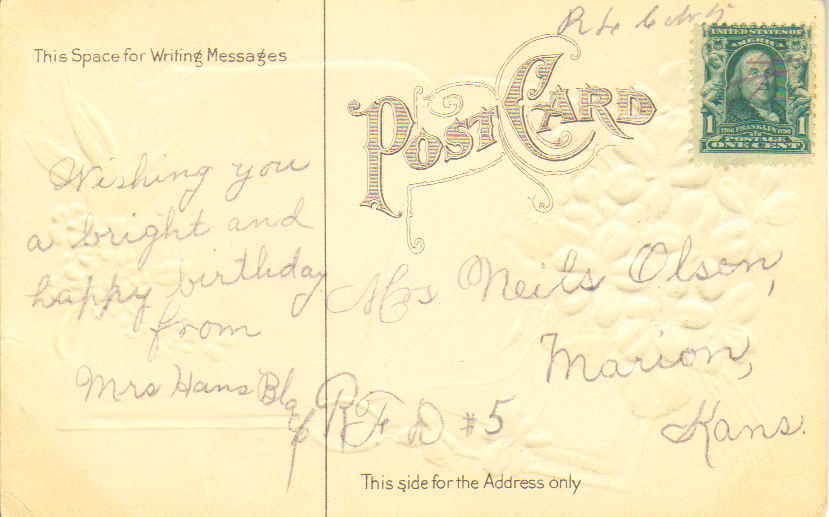 This Space for Writing Messages
POST CARD
UNITED STATES OF
AMERICA
1 1706 FRANKLIN 1790 1
POSTAGE
ONE CENT
Wishing you
a bright and
happy birthday
from
Mrs Hans
Mrs Neils Olson,
Marion,
Kans.
R F D #5
This side for the Address only